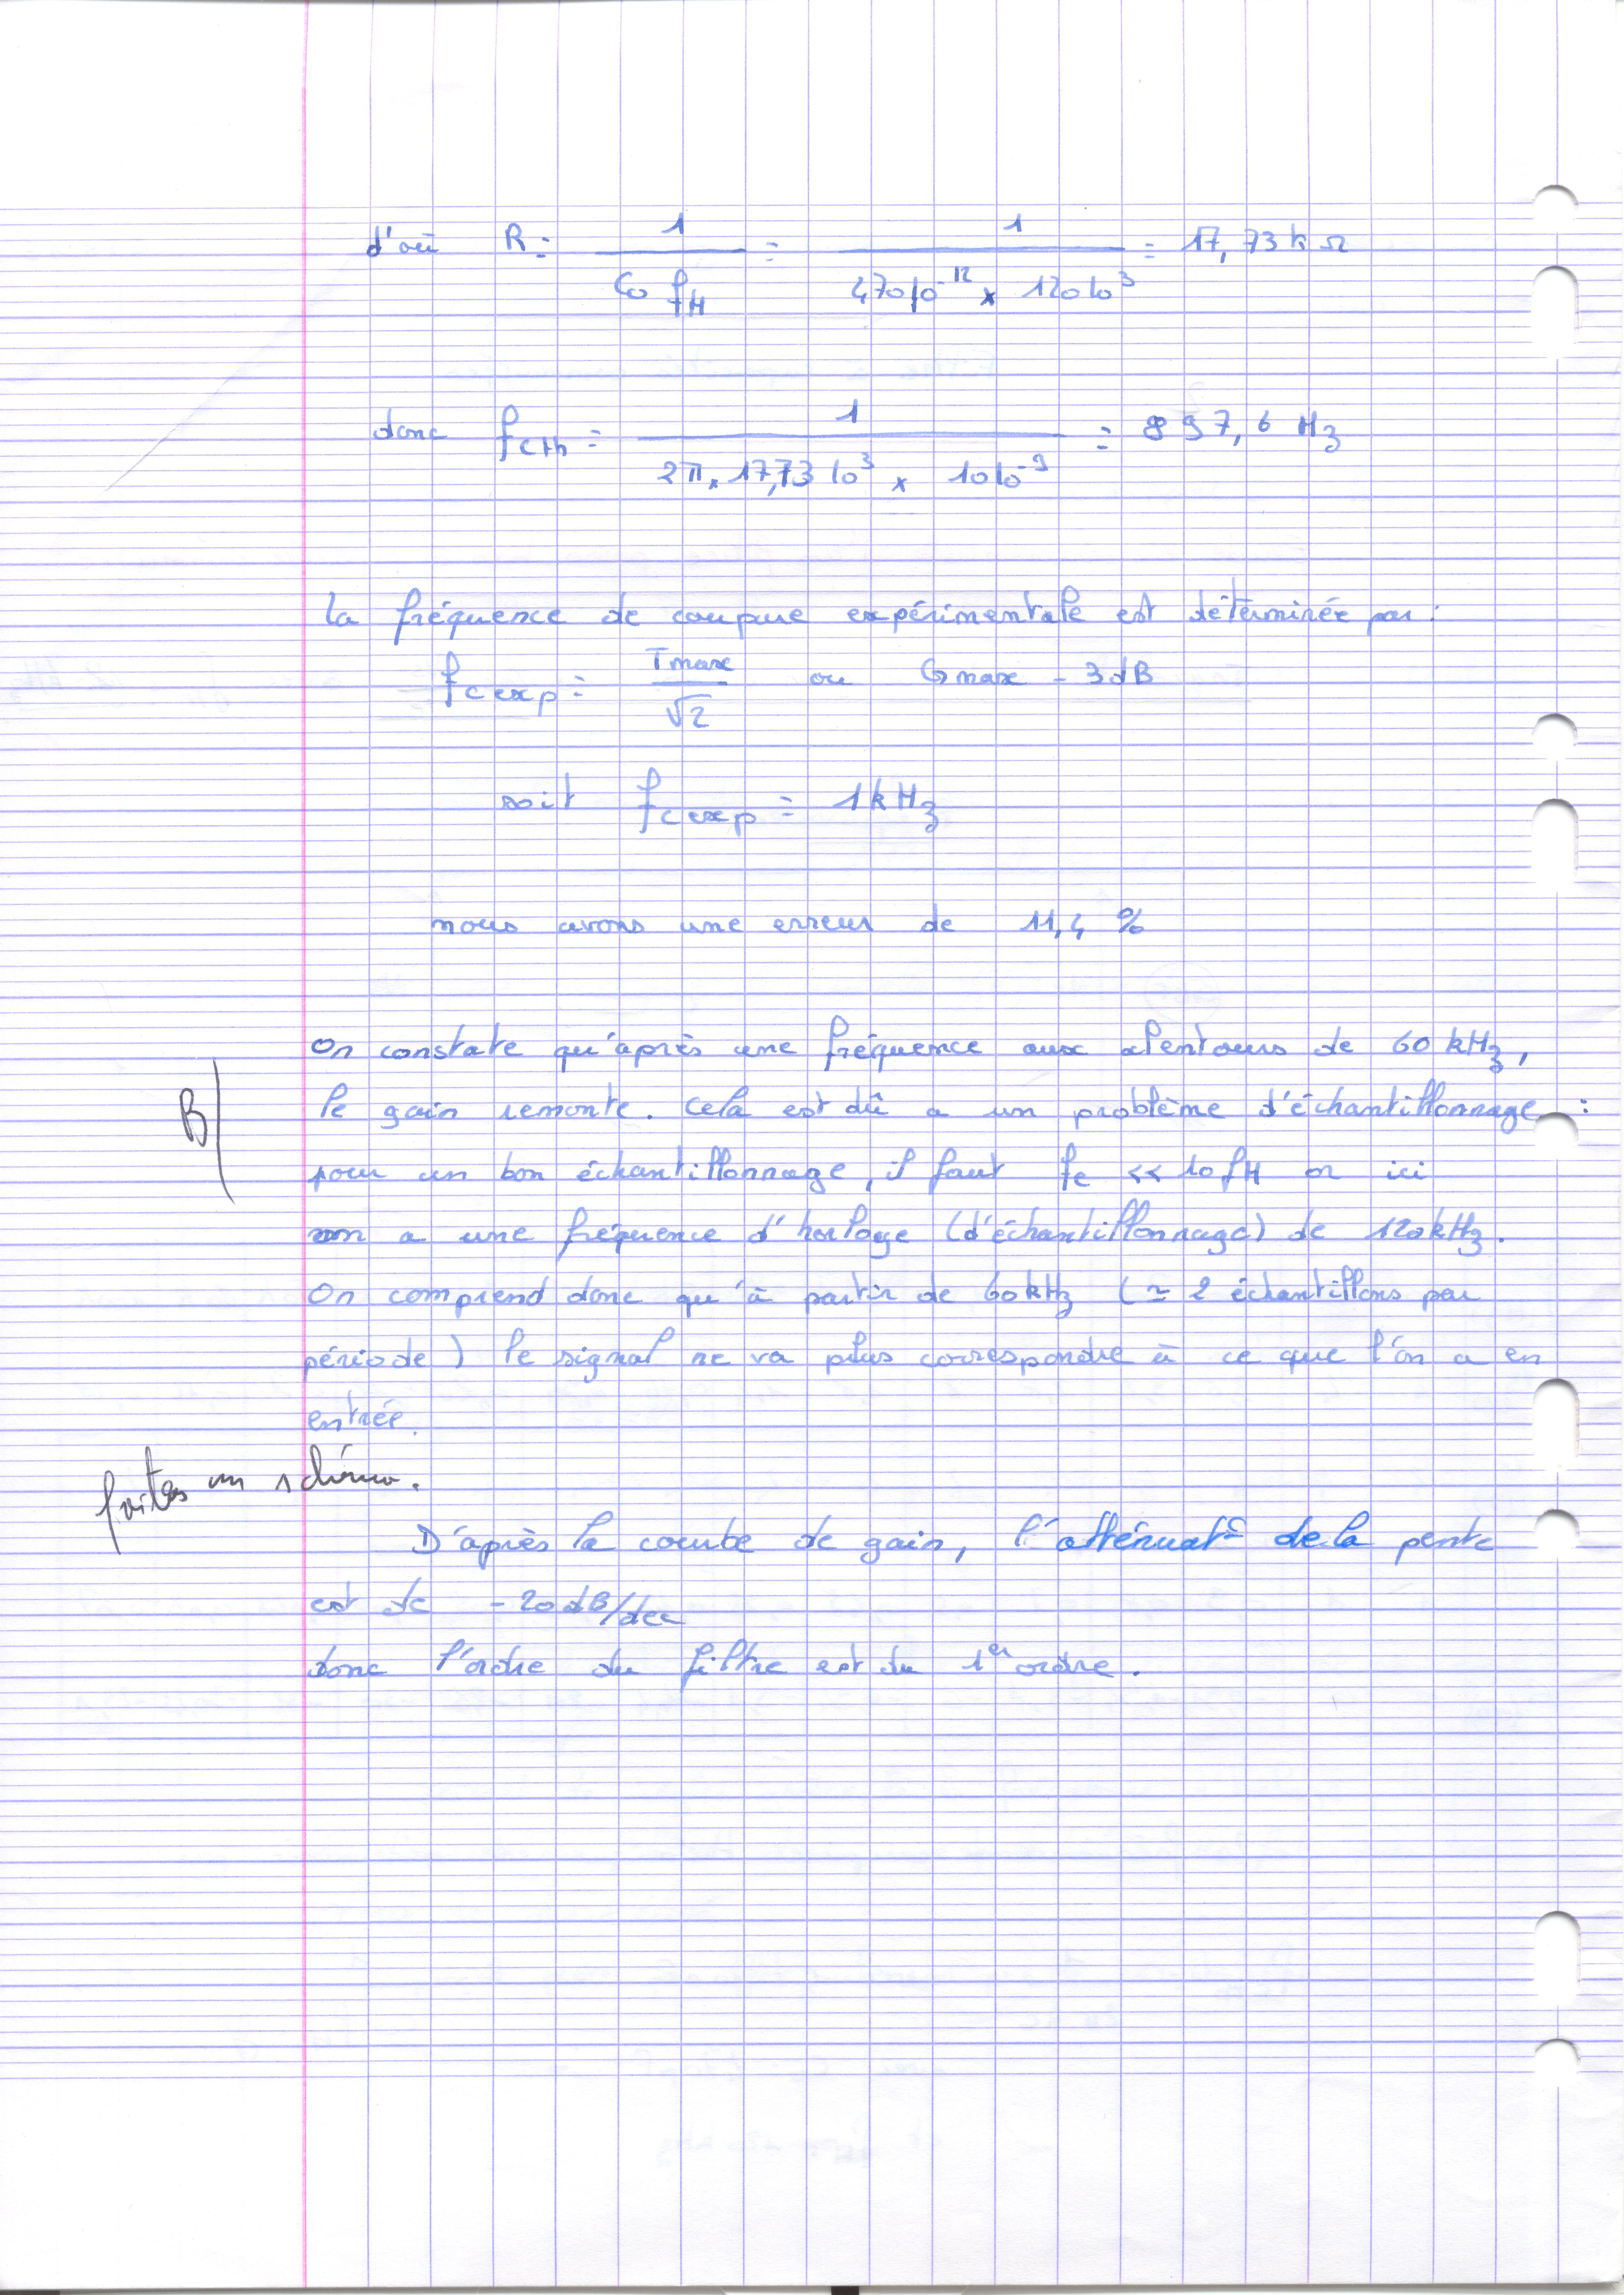 d'où R = 1 / (C0 fH) = 1 / (470 10^-12 x 120 10^3) = 17,73 k Ω
donc fcth = 1 / (2π x 17,73 10^3 x 10 10^-9) = 897,6 Hz
la fréquence de coupure expérimentale est déterminée par :
fc exp = Tmax / √2 ou Gmax - 3dB
soit fc exp = 1kHz
nous avons une erreur de 11,4 %
On constate qu'après une fréquence aux alentours de 60 kHz,
B/ le gain remonte. Cela est dû a un problème d'échantillonnage :
pour un bon échantillonnage, il faut fc << 10 fH or ici
on a une fréquence d'horloge (d'échantillonnage) de 120kHz.
On comprend donc qu'à partir de 60kHz (≃ 2 échantillons par
période) le signal ne va plus correspondre à ce que l'on a en
entrée.
faites un schéma.
D'après la courbe de gain, l'atténuat° de la pente
est de -20dB/dec
donc l'ordre du filtre est du 1er ordre.